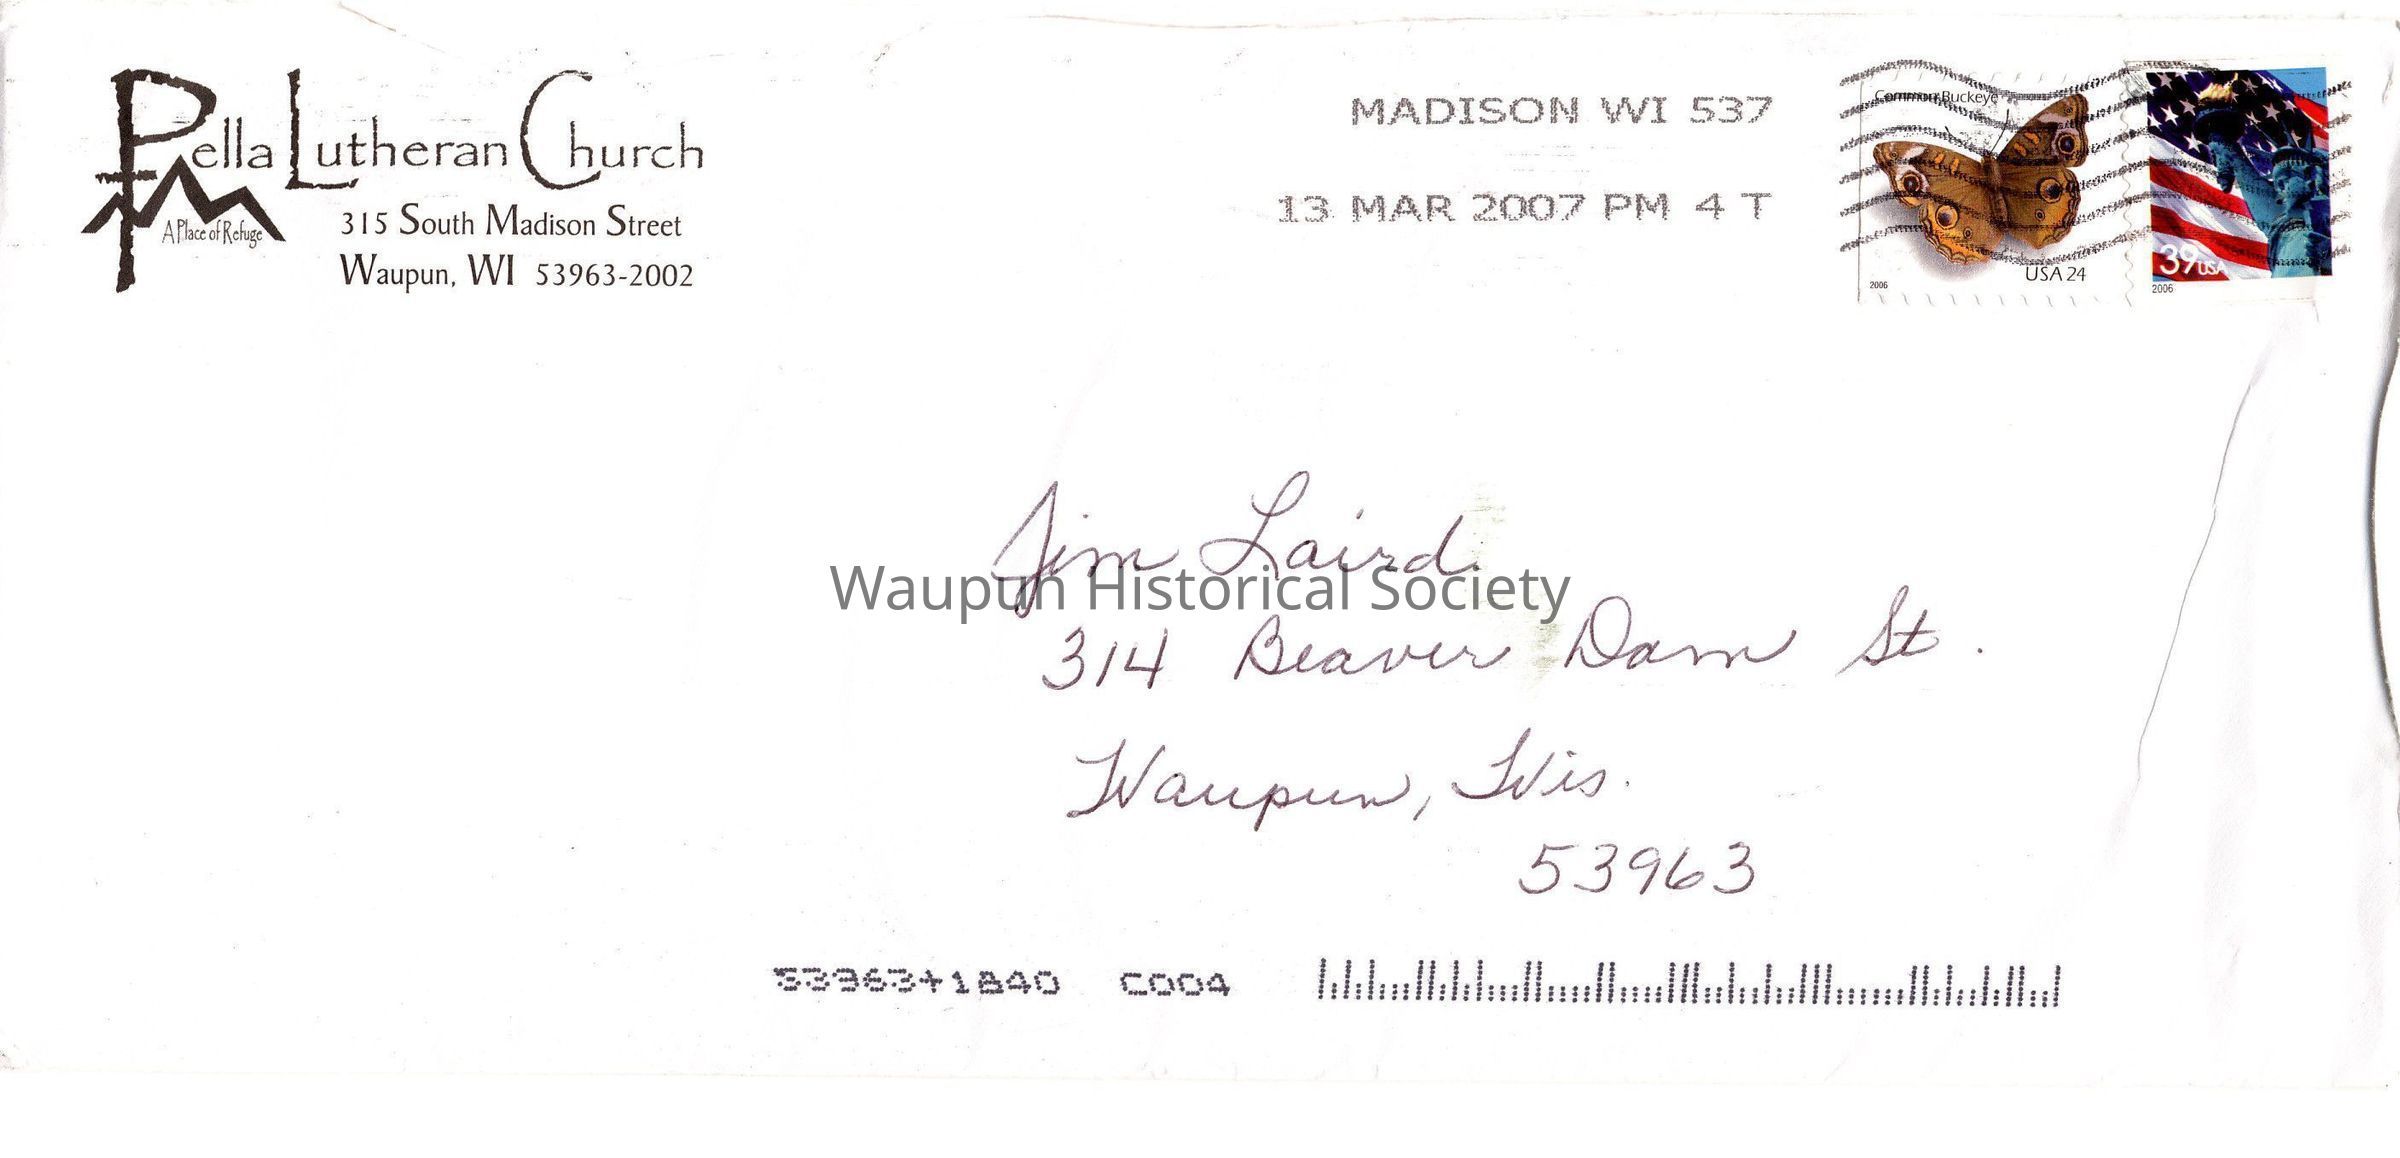 Pella Lutheran Church
A Place of Refuge
315 South Madison Street
Waupun, WI 53963-2002
MADISON WI 537
13 MAR 2007 PM 4 T
Common Buckeye
USA 24
2006
39 USA
2006
Jim Laird
Waupun Historical Society
314 Beaver Dam St.
Waupun, Wis.
53963
53963+1840 C004